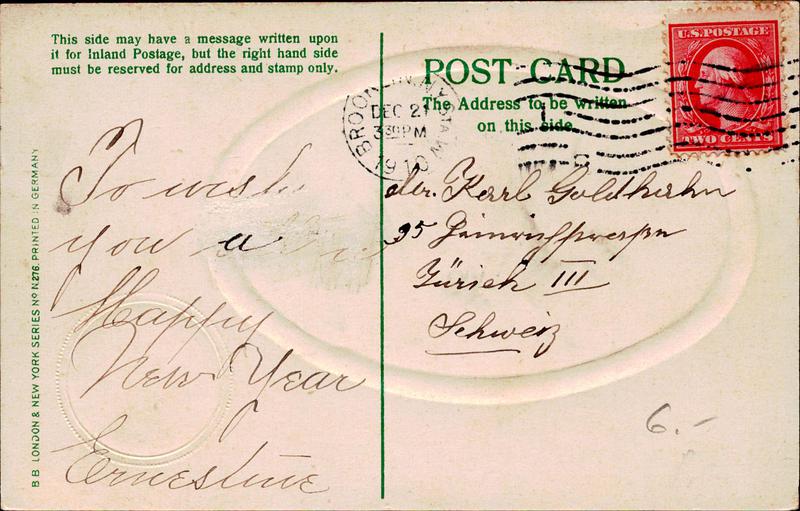 This side may have a message written upon
it for Inland Postage, but the right hand side
must be reserved for address and stamp only.
POST CARD
The Address to be written
on this side
U.S. POSTAGE
TWO CENTS
BROOKLYN, N.Y.
DEC 21
3 30 PM
1910
To wish
you a
Happy
New Year
Ernestine
Karl Goldhahn
35
Zürich III
Schweiz
6.-
B B LONDON & NEW YORK SERIES No N.276. PRINTED IN GERMANY